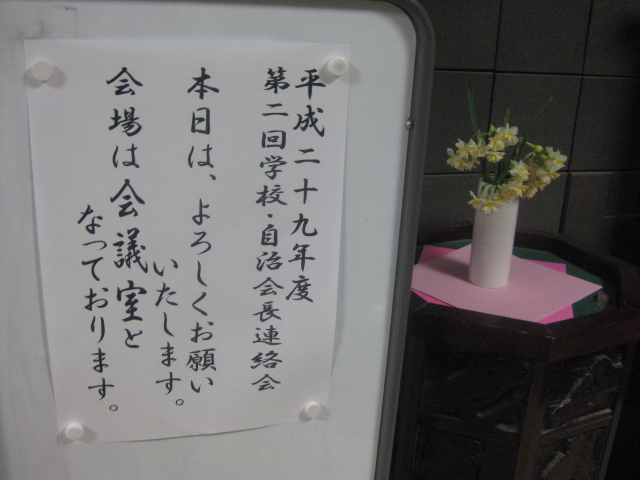 平成二十九年度
第二回学校・自治会長連絡会
本日は、よろしくお願い
いたします。
会場は会議室と
なっております。